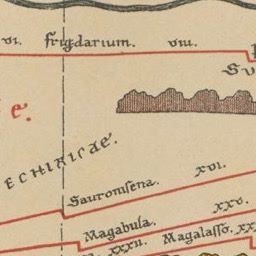 VI. frigdarium. VIII.
SV
e.
ECHIRICAE.
XVI.
Sauromsena.
XXV.
Magabula.
XXXII. Magalasso. XX